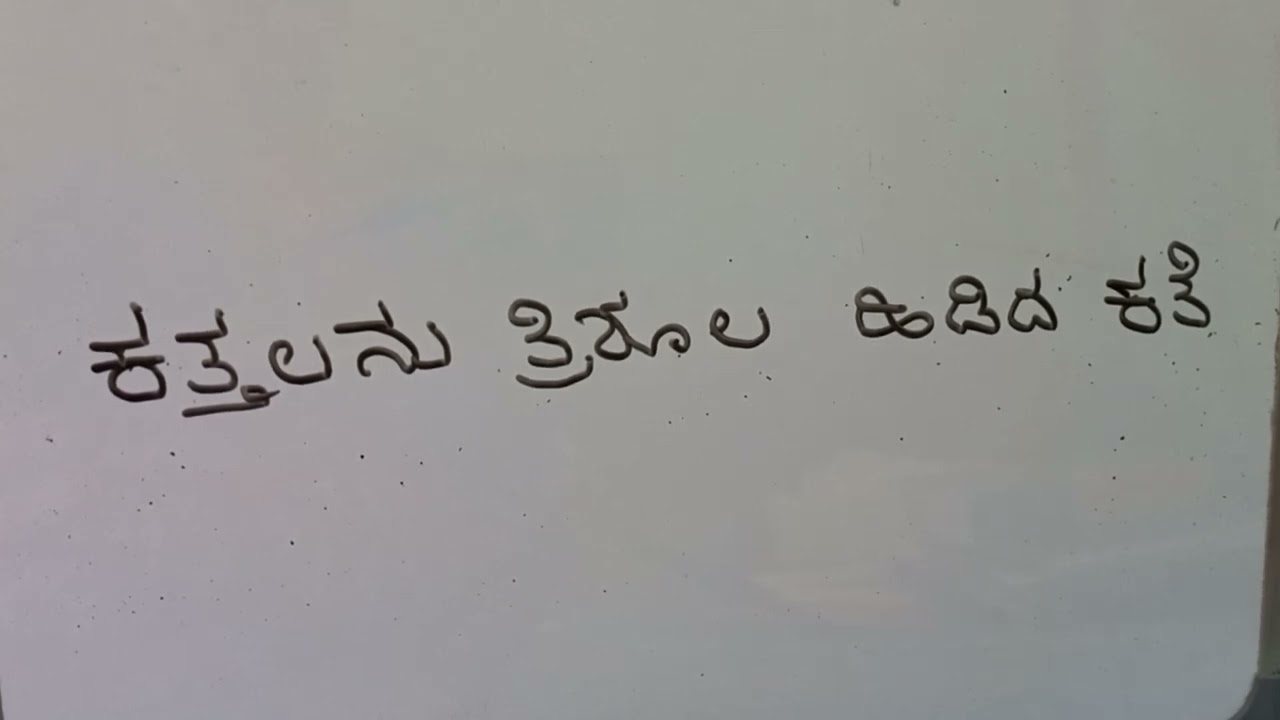 ಕತ್ತಲನು ತ್ರಿಶೂಲ ಹಿಡಿದ ಕತೆ